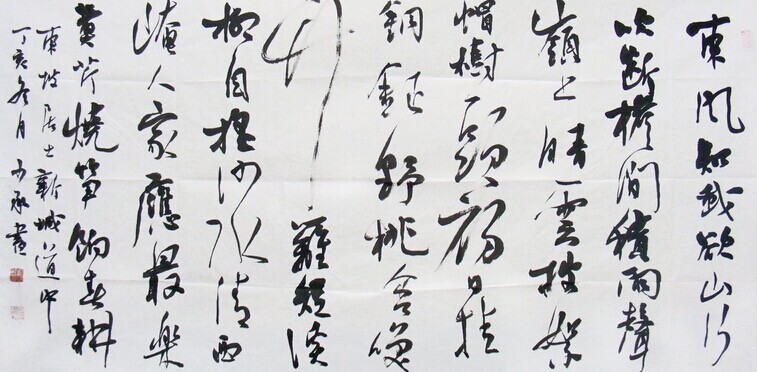 東風知我欲山行
吹斷檐間積雨聲
嶺上晴雲披絮
帽樹頭初日挂
銅鉦野桃含笑
竹籬短溪
柳自搖沙水清西
崦人家應最樂
煮芹燒筍餉春耕
東坡居士新城道中
丁亥冬月 書